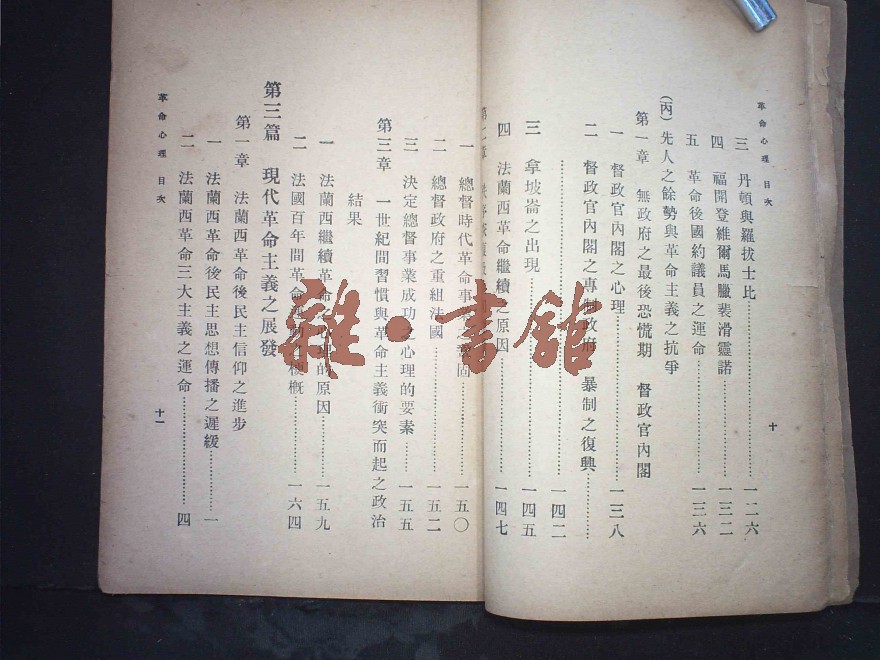 革命心理 目次
十
三 丹頓與羅拔士比⋯⋯一二六
四 福開登維爾馬臘裴滑靈諾⋯⋯一三二
五 革命後國約議員之運命⋯⋯一三六
(丙)先人之餘勢與革命主義之抗爭
第一章 無政府之最後恐慌期 督政官內閣
一 督政官內閣之心理⋯⋯一三八
二 督政官內閣之專制政府 暴制之復興⋯⋯
⋯⋯一四二
三 拿坡崙之出現⋯⋯一四五
四 法蘭西革命繼續之原因⋯⋯一四七
第二章
一 總督時代革命事 固⋯⋯一五〇
二 總督政府之重組法國⋯⋯一五二
三 決定總督事業成功之心理的要素⋯⋯一五五
第三章 一世紀間習慣與革命主義衝突而起之政治
結果
一 法蘭西繼續革命 心理的原因⋯⋯一五九
二 法國百年間革命運動之梗概⋯⋯一六四
第三篇 現代革命主義之展發
第一章 法蘭西革命後民主信仰之進步
一 法蘭西革命後民主思想傳播之遲緩⋯⋯一
二 法蘭西革命三大主義之運命⋯⋯四
革命心理 目次
十一
雜·書館